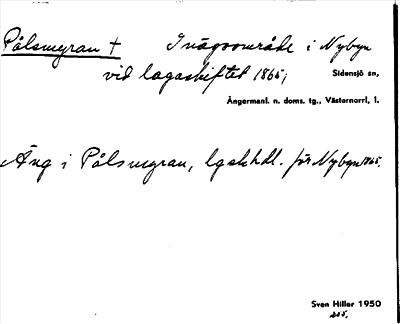 Pålsmyran † Inägoområde i Nybyn
vid lagaskiftet 1865;
Sidensjö sn,
Ångermanl. n. doms. tg., Västernorrl. l.
Äng i Pålsmyran, lgskhdl. för Nybyn 1865.
Sven Hiller 1950